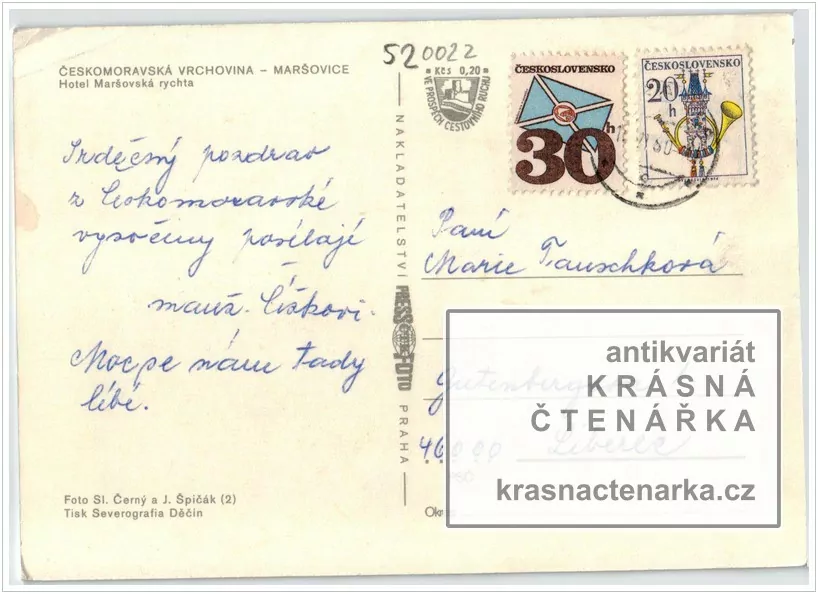 520022
ČESKOMORAVSKÁ VRCHOVINA – MARŠOVICE
Hotel Maršovská rychta
Kčs 0,20
VE PROSPĚCH CESTOVNÍHO RUCHU
ČESKOSLOVENSKO
30h
ČESKOSLOVENSKO
20h
Srdečný pozdrav
z Českomoravské
vysočiny posílají
manž. Čížkovi.
Moc se nám tady
líbí.
NAKLADATELSTVÍ
PRESSFOTO
PRAHA
Paní
Marie Tauschková
Gutenbergova
460 00 Liberec
Okres
antikvariát
KRÁSNÁ
ČTENÁŘKA
krasnactenarka.cz
Foto Sl. Černý a J. Špičák (2)
Tisk Severografia Děčín